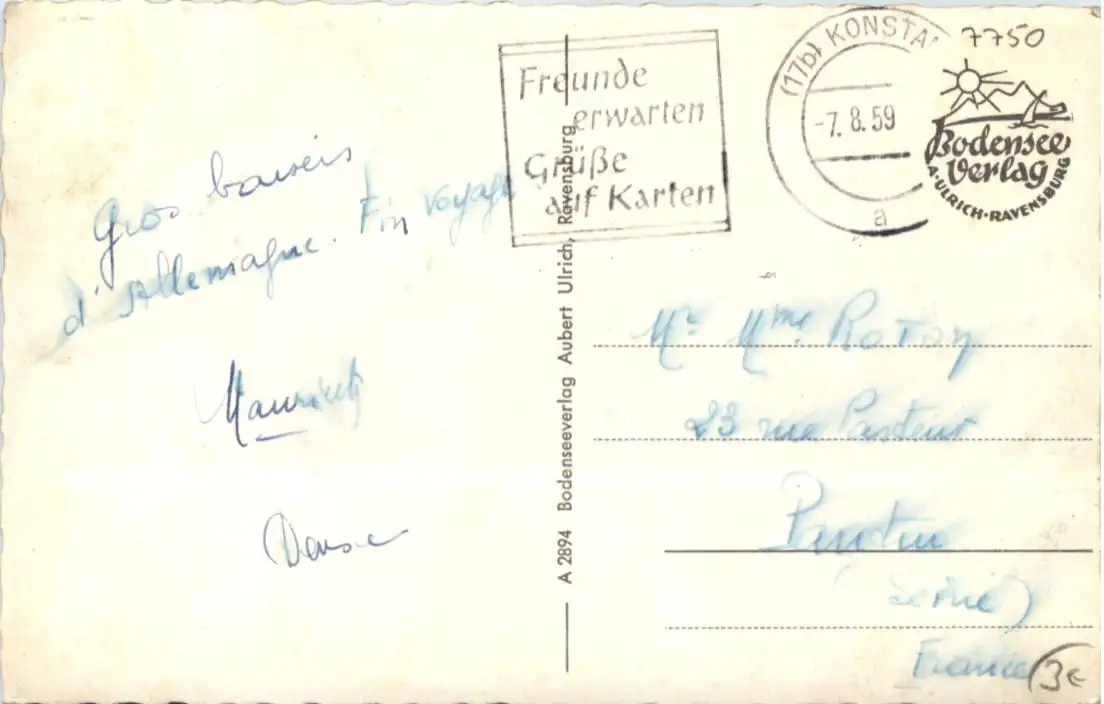 Gros baisers
d'Allemagne. Fin voyage
Maurice
Denise
A 2894 Bodenseeverlag Aubert Ulrich, Ravensburg
Freunde
erwarten
Grüße
auf Karten
(17b) KONSTA
-7. 8. 59
a
7750
Bodensee
Verlag
A. ULRICH · RAVENSBURG
Mr Mme
23 rue Pasteur
Pantin
(Seine)
France
3€